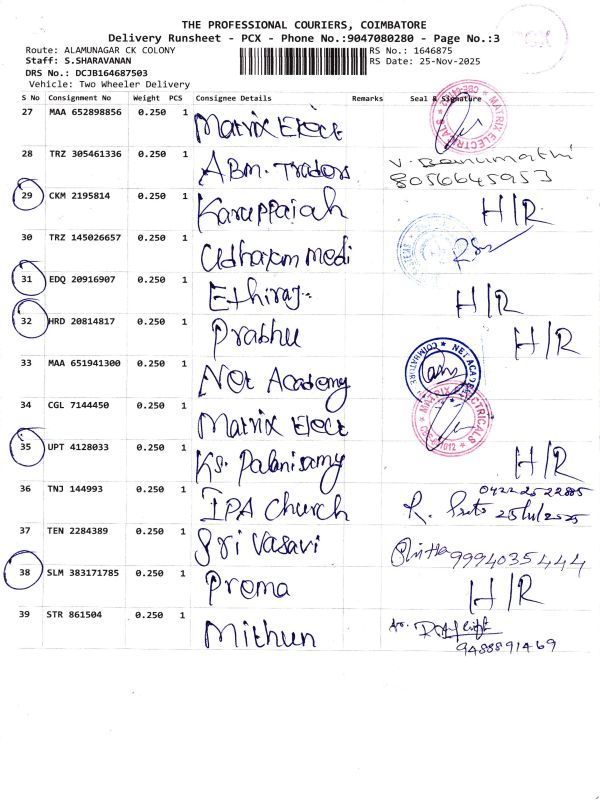 THE PROFESSIONAL COURIERS, COIMBATORE
Delivery Runsheet - PCX - Phone No.:9047080280 - Page No.:3
Route: ALAMUNAGAR CK COLONY RS No.: 1646875
Staff: S.SHARAVANAN RS Date: 25-Nov-2025
DRS No.: DCJB164687503
Vehicle: Two Wheeler Delivery
S No Consignment No Weight PCS Consignee Details Remarks Seal & Signature
27 MAA 652898856 0.250 1 Matrix Elect MATRIX ELECTRICALS
28 TRZ 305461336 0.250 1 ABm. Traders V. Banumathi
8056645953
29 CKM 2195814 0.250 1 Karuppaiah H/R
30 TRZ 145026657 0.250 1 Udhayam medi
31 EDQ 20916907 0.250 1 Ethiraj H/R
32 HRD 20814817 0.250 1 Prabhu H/R
33 MAA 651941300 0.250 1 Net Academy NET ACADEMY COIMBATORE
34 CGL 7144450 0.250 1 Matrix Elect MATRIX ELECTRICALS
35 UPT 4128033 0.250 1 Ks. Palanisamy H/R
36 TNJ 144993 0.250 1 IPA Church 0422 2522885
R. 25/11/2025
37 TEN 2284389 0.250 1 Sri Vasavi 9994035444
38 SLM 383171785 0.250 1 Prema H/R
39 STR 861504 0.250 1 Mithun
9488891469